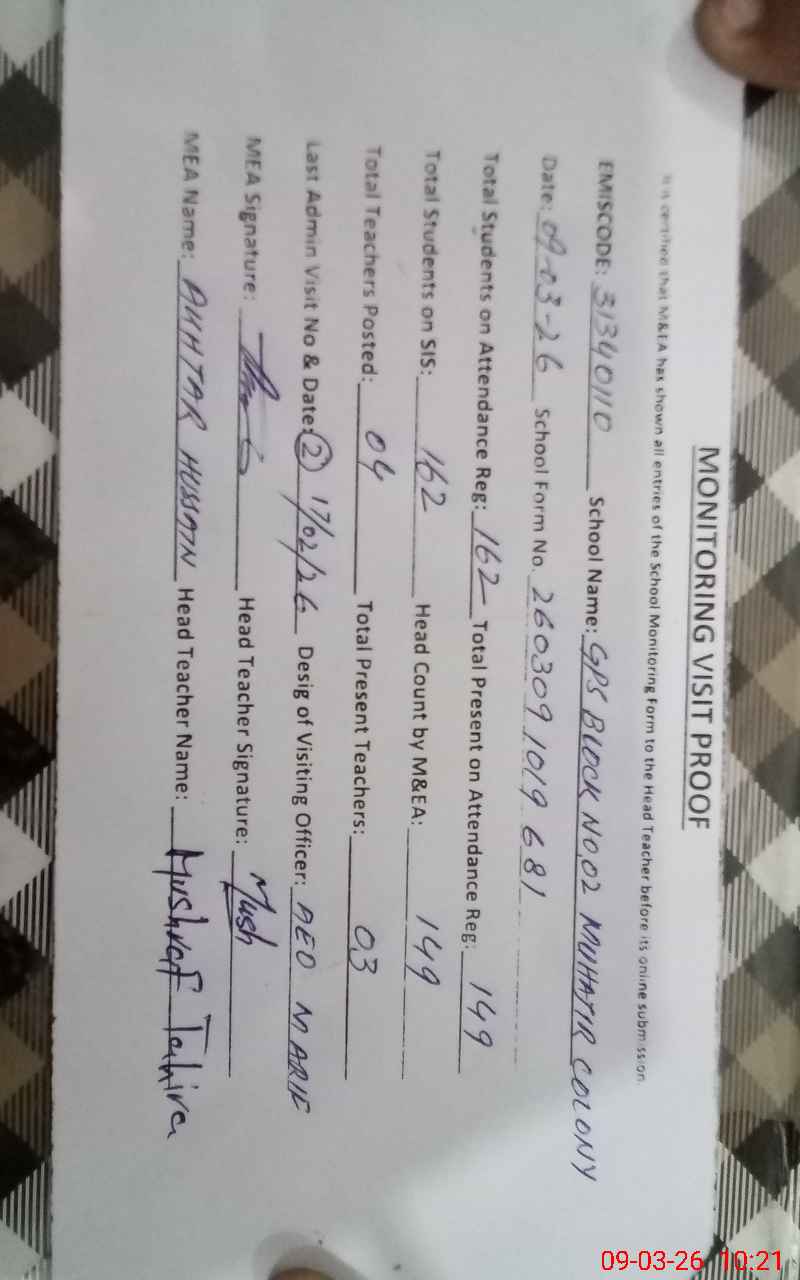 MONITORING VISIT PROOF
It is certified that M&EA has shown all entries of the School Monitoring Form to the Head Teacher before its online submission.
EMISCODE: 31340110 School Name: GPS BLOCK NO.02 MUHAJIR COLONY
Date: 09-03-26 School Form No. 260309 1019 681
Total Students on Attendance Reg: 162 Total Present on Attendance Reg: 149
Total Students on SIS: 162 Head Count by M&EA: 149
Total Teachers Posted: 04 Total Present Teachers: 03
Last Admin Visit No & Date: 2 17/02/26 Desig of Visiting Officer: AEO M ARIF
MEA Signature: Head Teacher Signature: Mush
MEA Name: AKHTAR HUSSAIN Head Teacher Name: Mushraf Tahira
09-03-26 10:21